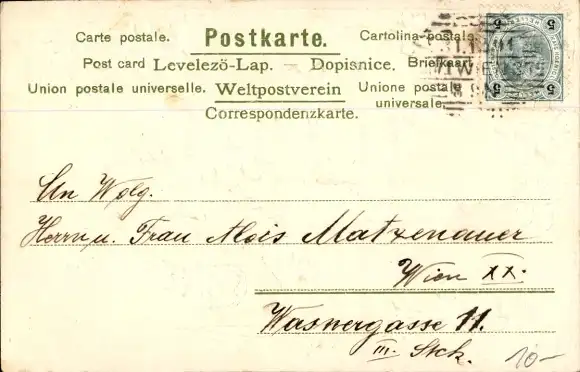 Carte postale. Postkarte. Cartolina-postale
Post card Levelező-Lap. — Dopisnice. Briefkaart
Union postale universelle. Weltpostverein Unione postale
universale.
Correspondenzkarte.
5 5
WIEN
An Wolg.
Herrn u. Frau Alois Matzenauer
Wien XX.
Wasnergasse 11.
III. Stck.
10–